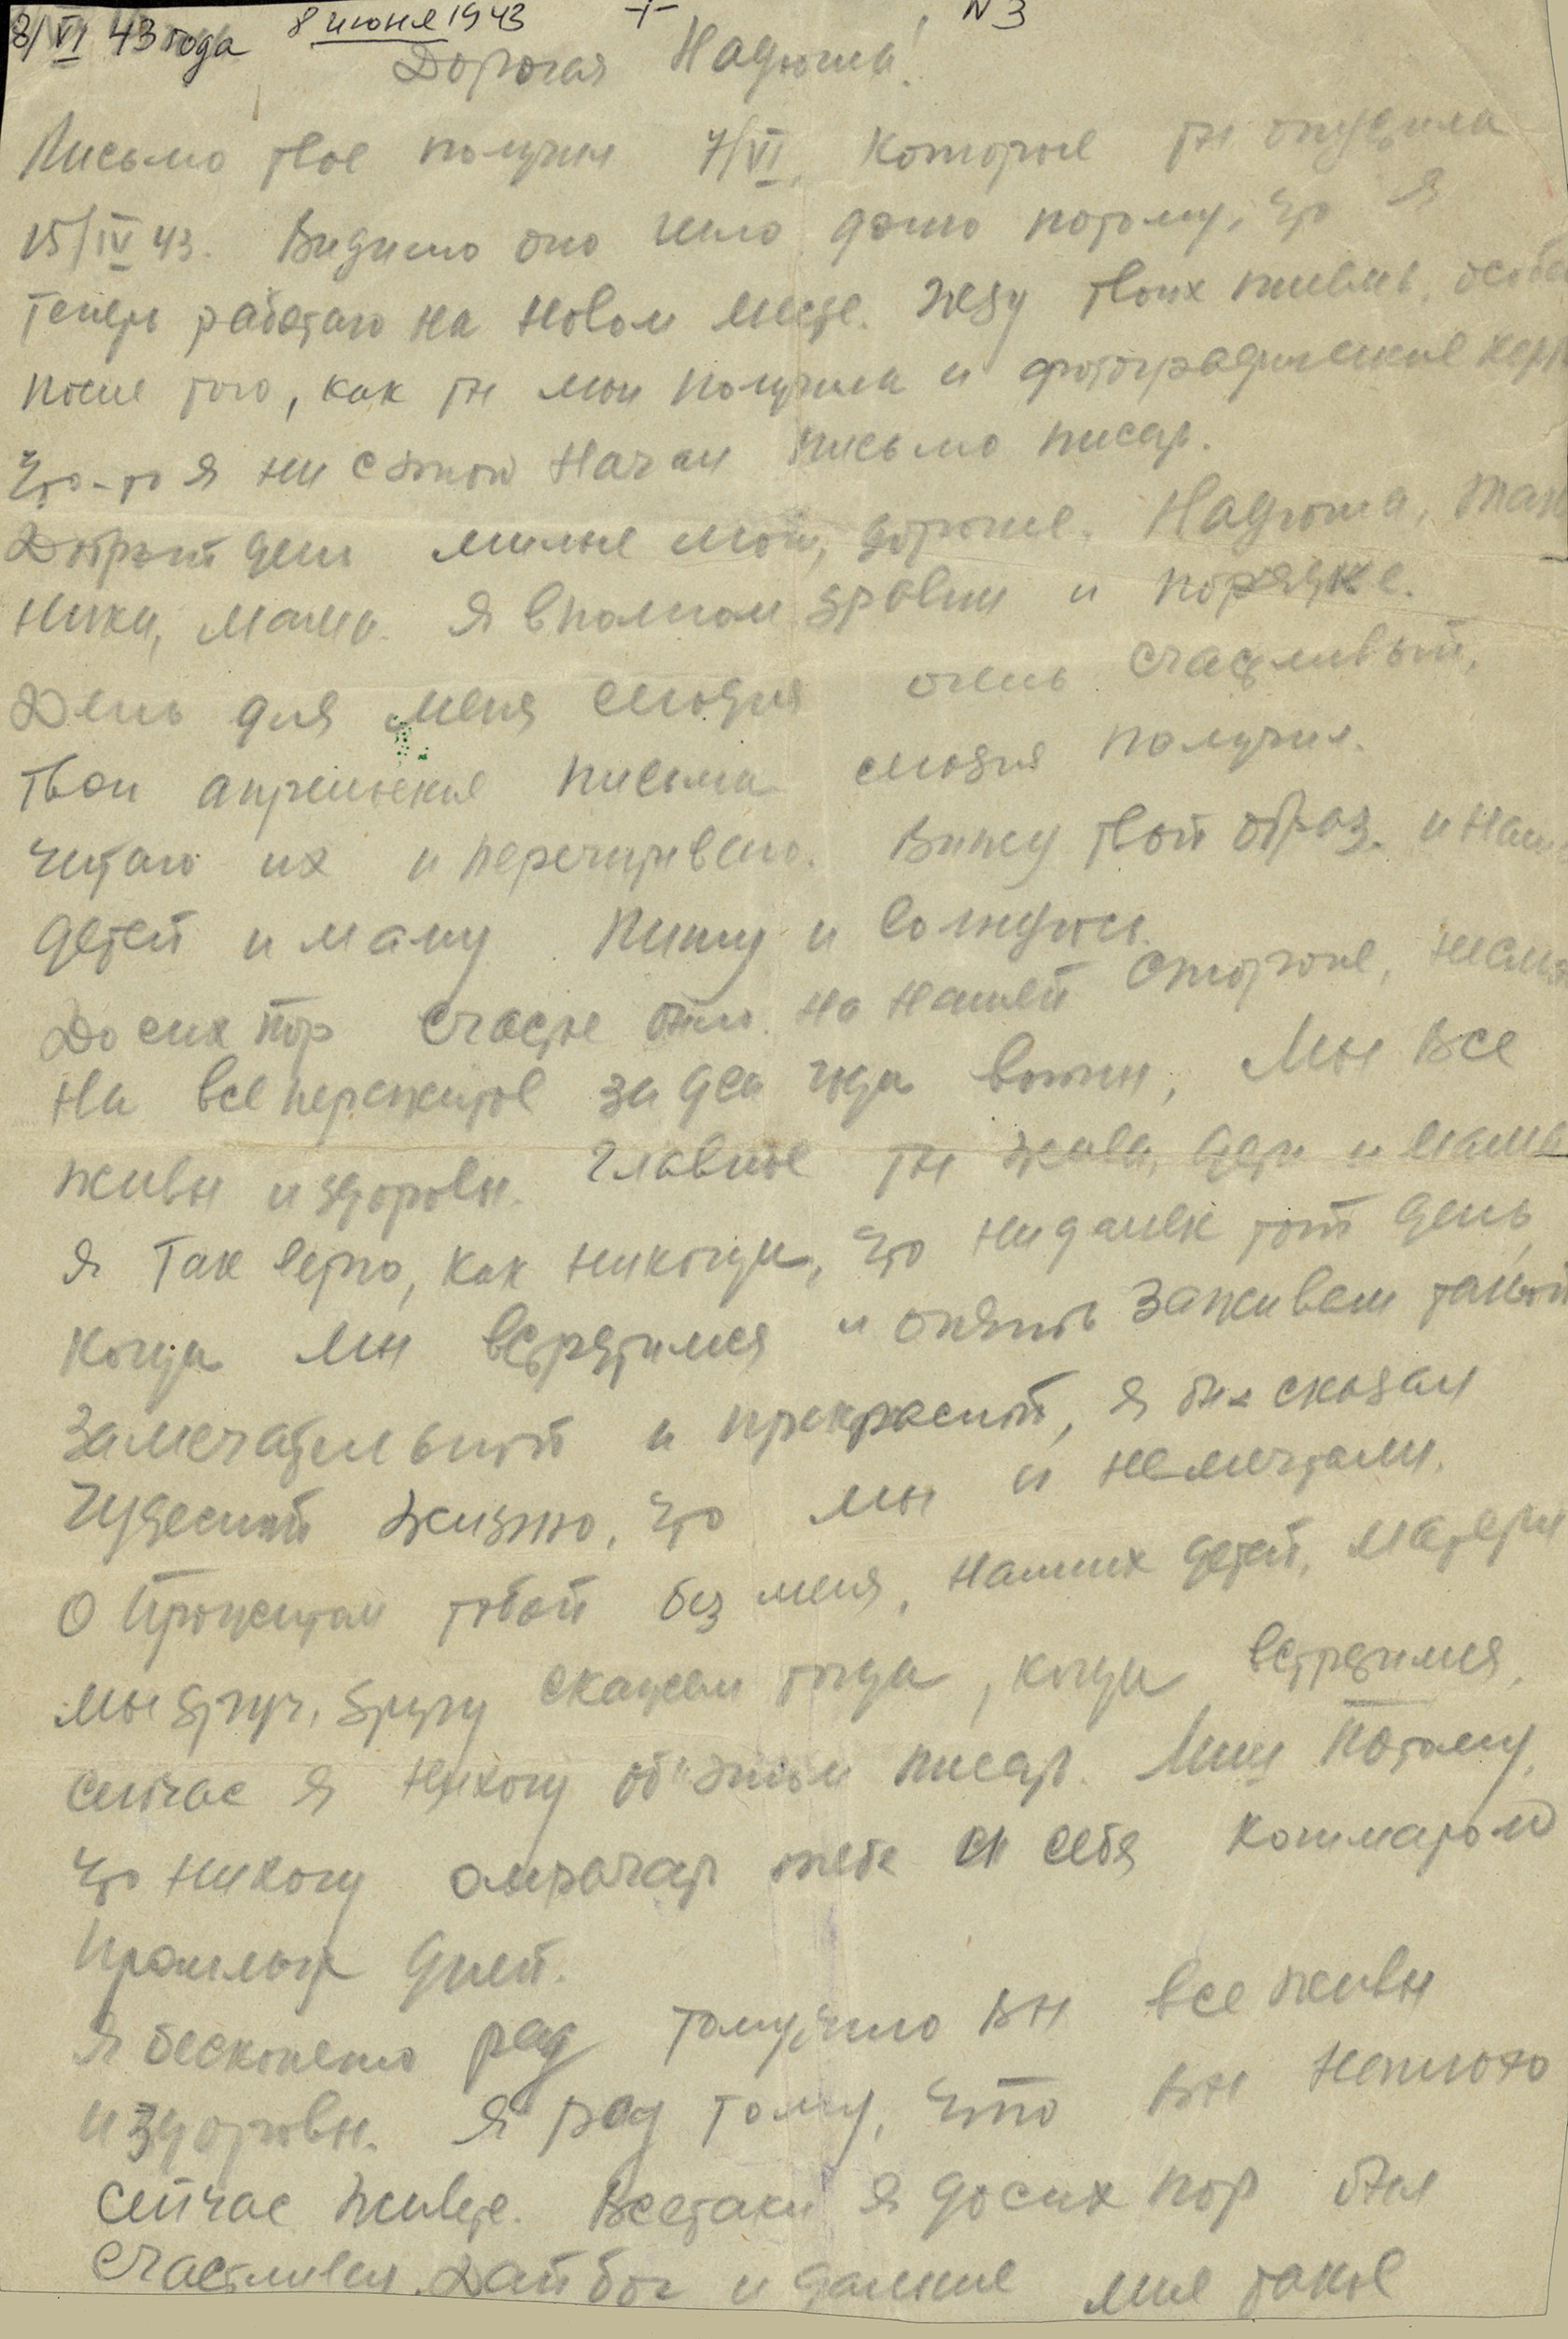 8/VI 43 года 8 июня 1943 + N 3
Дорогая Надюша!
Письмо твое получил 7/VI, которые ты опустила
15/IV 43. Видимо оно шло долго потому, что я
теперь работаю на новом месте. Жду твоих писем, особе
после того, как ты мои получила и фотографические кар
Что-то я не с этого начал письмо писать.
Добрый день милые мои, дорогие. Надюша,
Ники, мама. Я вполном здравии и порядке.
День для меня сегодня очень счастливый,
твои апрельские письма сегодня получил.
Читаю их и перечитываю. Вижу твой образ и наши
детей и маму Пишу и волнуюсь.
До сих пор счастье было на нашей стороне,
На все пережитое за два года войны, Мы все
живы и здоровы. Главное ты жива, дети и мама
Я так верю, как никогда, что недалек тот день,
когда мы встретимся и опять заживем такой
замечательной и прекрасной, я бы сказал
чудесной жизнью, что мы и не мечтали.
О прожитом тобой без меня, наших детей, матери
мы друг, другу скажем тогда, когда встретимся,
сейчас я не хочу об этом писать. Лишь потому,
что не хочу омрачать тебя и себя кошмаром
прошлых дней.
Я бесконечно рад тому, что вы все живы
и здоровы. Я рад тому, что вы неплохо
сейчас живете. Все таки я до сих пор был
счастливец. Дай бог и дальше мне такое